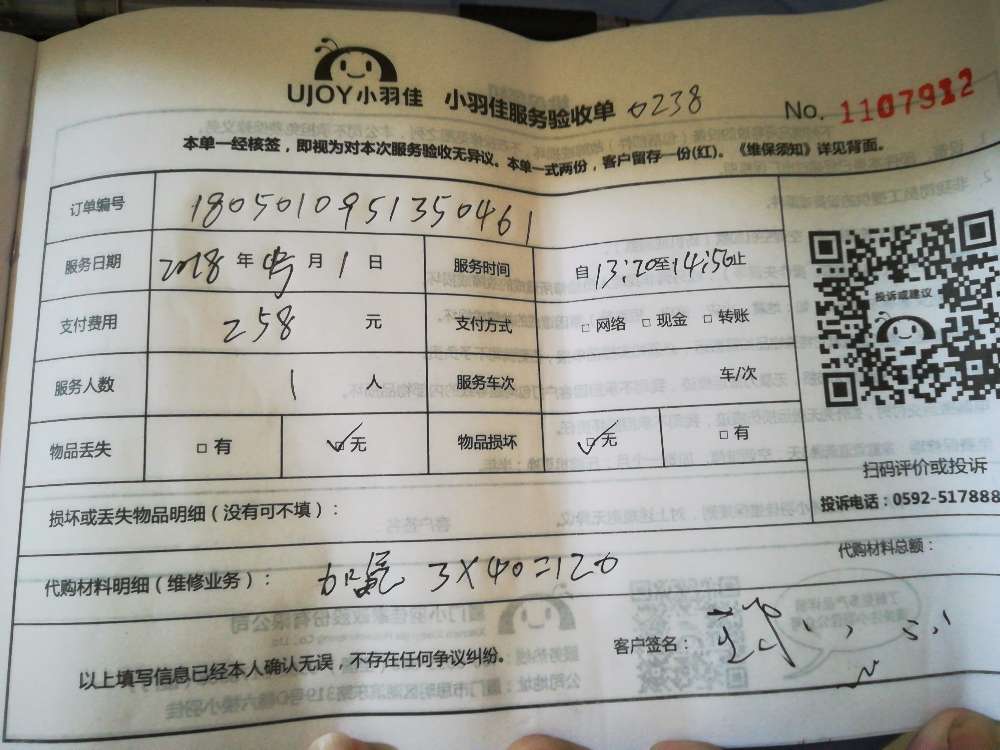 UJOY小羽佳 小羽佳服务验收单 0238 No. 1107912
本单一经核签，即视为对本次服务验收无异议。本单一式两份，客户留存一份(红)。《维保须知》详见背面。
订单编号 180501095135046 1
服务日期 2018 年 月 1 日 服务时间 自 13:20至14:56止
支付费用 258 元 支付方式 □ 网络 □ 现金 □ 转账
投诉或建议
服务人数 1 人 服务车次 车/次
物品丢失 □ 有 ☑ 无 物品损坏 ☑ 无 □ 有
扫码评价或投诉
投诉电话：0592-517888
损坏或丢失物品明细（没有可不填）：
代购材料明细（维修业务）： 加 3×40=120 代购材料总额：
以上填写信息已经本人确认无误，不存在任何争议纠纷。 客户签名：